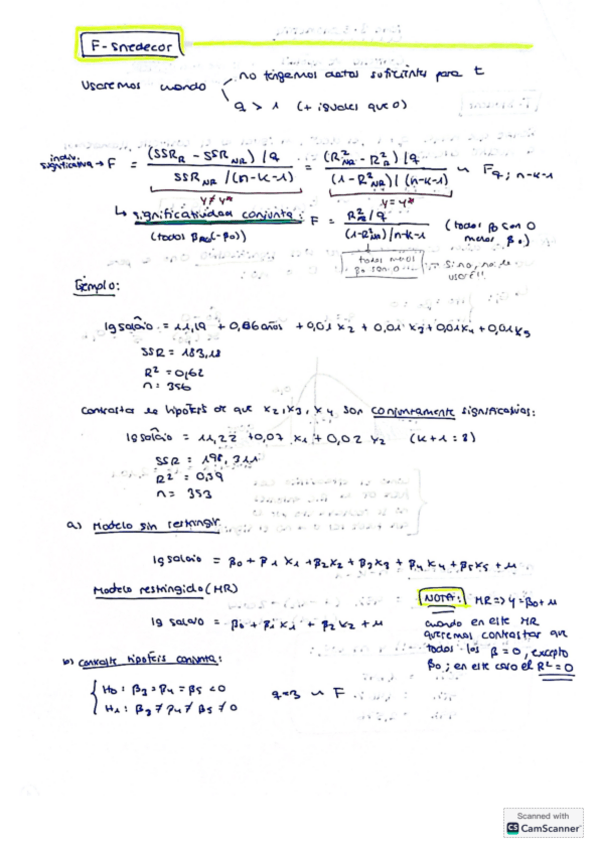 F-Snedecor
Usaremos cuando
no tengamos datos suficientes para t
q > 1 (+ iguales que 0)
indiv. significativa → F = (SSR_R - SSR_NR)/q / SSR_NR/(n-k-1) = (R²_NR - R²_R)/q / (1-R²_NR)/(n-k-1) ~ F q; n-k-1
y≠y* y=y*
↳ significatividad conjunta: F = /q / /n-k-1 (todos β son 0 menos β0)
(todos
todos menos
β0 son 0 Si no, no se
Ejemplo:
lg salario = 11,19 + 0,86 años + 0,01 x2 + 0,01 x3 + 0,01 x4 + 0,01 x5
SSR = 183,18
R² = 0,62
n = 356
Contrasta la hipótesis de que x2, x3, x4 son conjuntamente significativas:
lg salario = 11,22 + 0,07 x1 + 0,02 x2 (k+1:3)
SSR = 198,311
R² = 0,39
n = 353
a) Modelo sin restringir
lg salario = β0 + β1 x1 + β2 x2 + β3 x3 + β4 x4 + β5 x5 + μ
Modelo restringido (MR)
lg salario = β0 + β1 x1 + β2 x2 + μ
NOTA: MR => y = β0 + μ
cuando en este MR
queremos contrastar que
todos los β = 0, excepto
β0; en este caso el R² = 0
b) Contraste hipótesis conjunta:
H0: β3 = β4 = β5 = 0 q=3 ~ F
H1: β3 ≠ β4 ≠ β5 ≠ 0
Scanned with
CS CamScanner